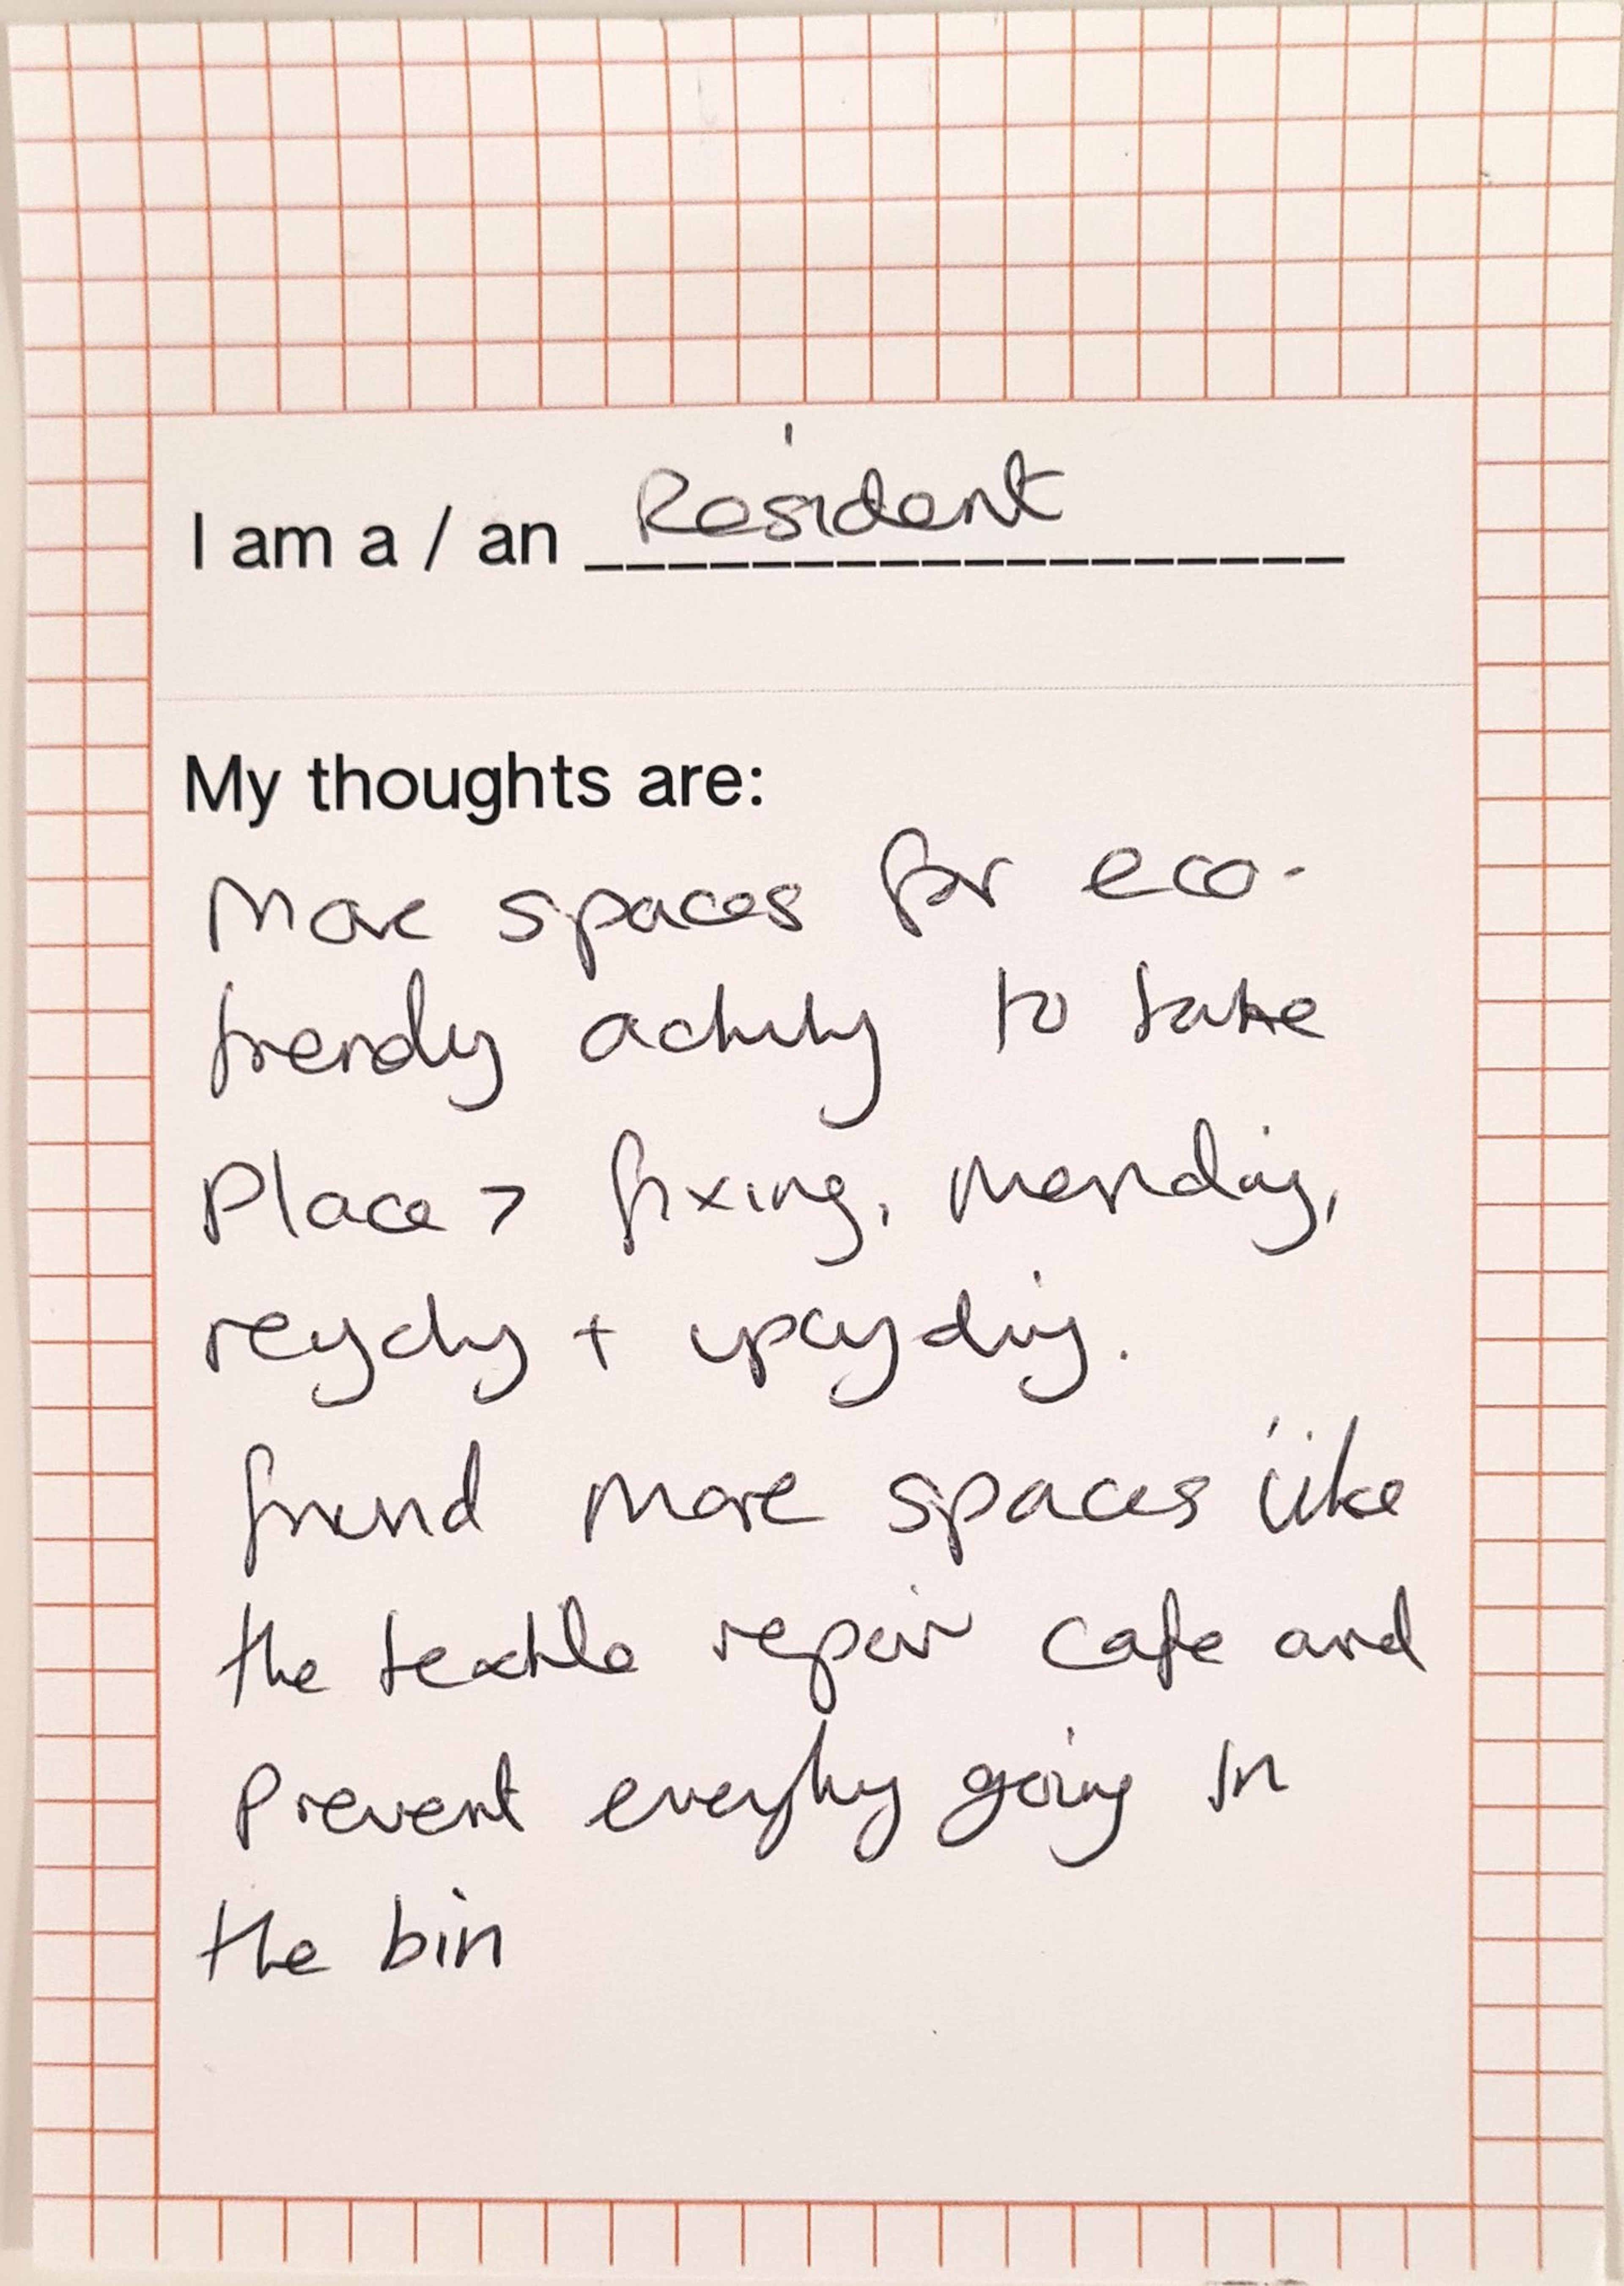 I am a / an Resident
My thoughts are:
More spaces for eco-
friendly activity to take
Place > fixing, mending,
recycling + upcycling.
friend more spaces like
the textile repair cafe and
Prevent everything going in
the bin